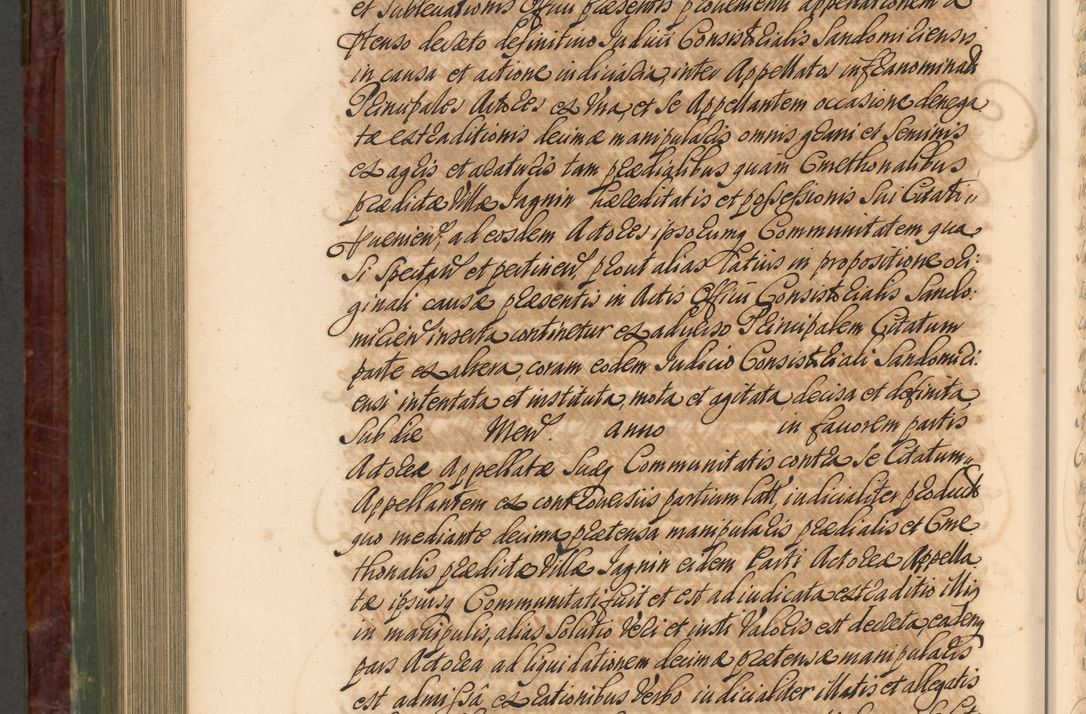 et sublevationis Officii praesentis provenienti appellationem a
ptenso decreto definitivo Judicii Consistorialis Sandomiriensis
in causa et actione indiciaria, inter Appellatos infranominatos
Principales Actores ex una, et se Appellantem occasione denega
tae extraditionis decimae manipularis omnis grani et seminis
ex agris et araturis tam praedialibus quam Cmethonalibus
praedictae Villae Jagnin haereditatis et possessionis sui Citati
pvenien, ad eosdem Actores ipsorumq Communitatem qua
si spectan et pertinen prout alias latius in propositione ori:
ginali causae praesentis in Actis Officii Consistorialis Sando:
mirien inserta continetur ex adverso Principalem Citatum
parte ex altera, coram eodem Judicio Consistoriali Sandomiri:
ensi intentata et instituta, mota et agitata, decisa et definita
sub die Men. anno in favorem partis
Actoreae Appellatae Suaeq Communitatis contra se Citatum
Appellantem ex controversiis partium latt, iudicialiter producto
quo mediante decima praetensa manipularis praedialis et Cme
thonalis praedictae Villae Jagnin eidem Parti Actoreae Appella
tae ipsiusq Communitati fuit et est adiudicata extraditio illiq
in manipulis, alias solutio veri et iusti valoris est decreta, eademq
pars Actorea ad liquidationem decimae praetensae manipularis
est admissa ex rationibus verbo iudicialiter illatis et allegatis